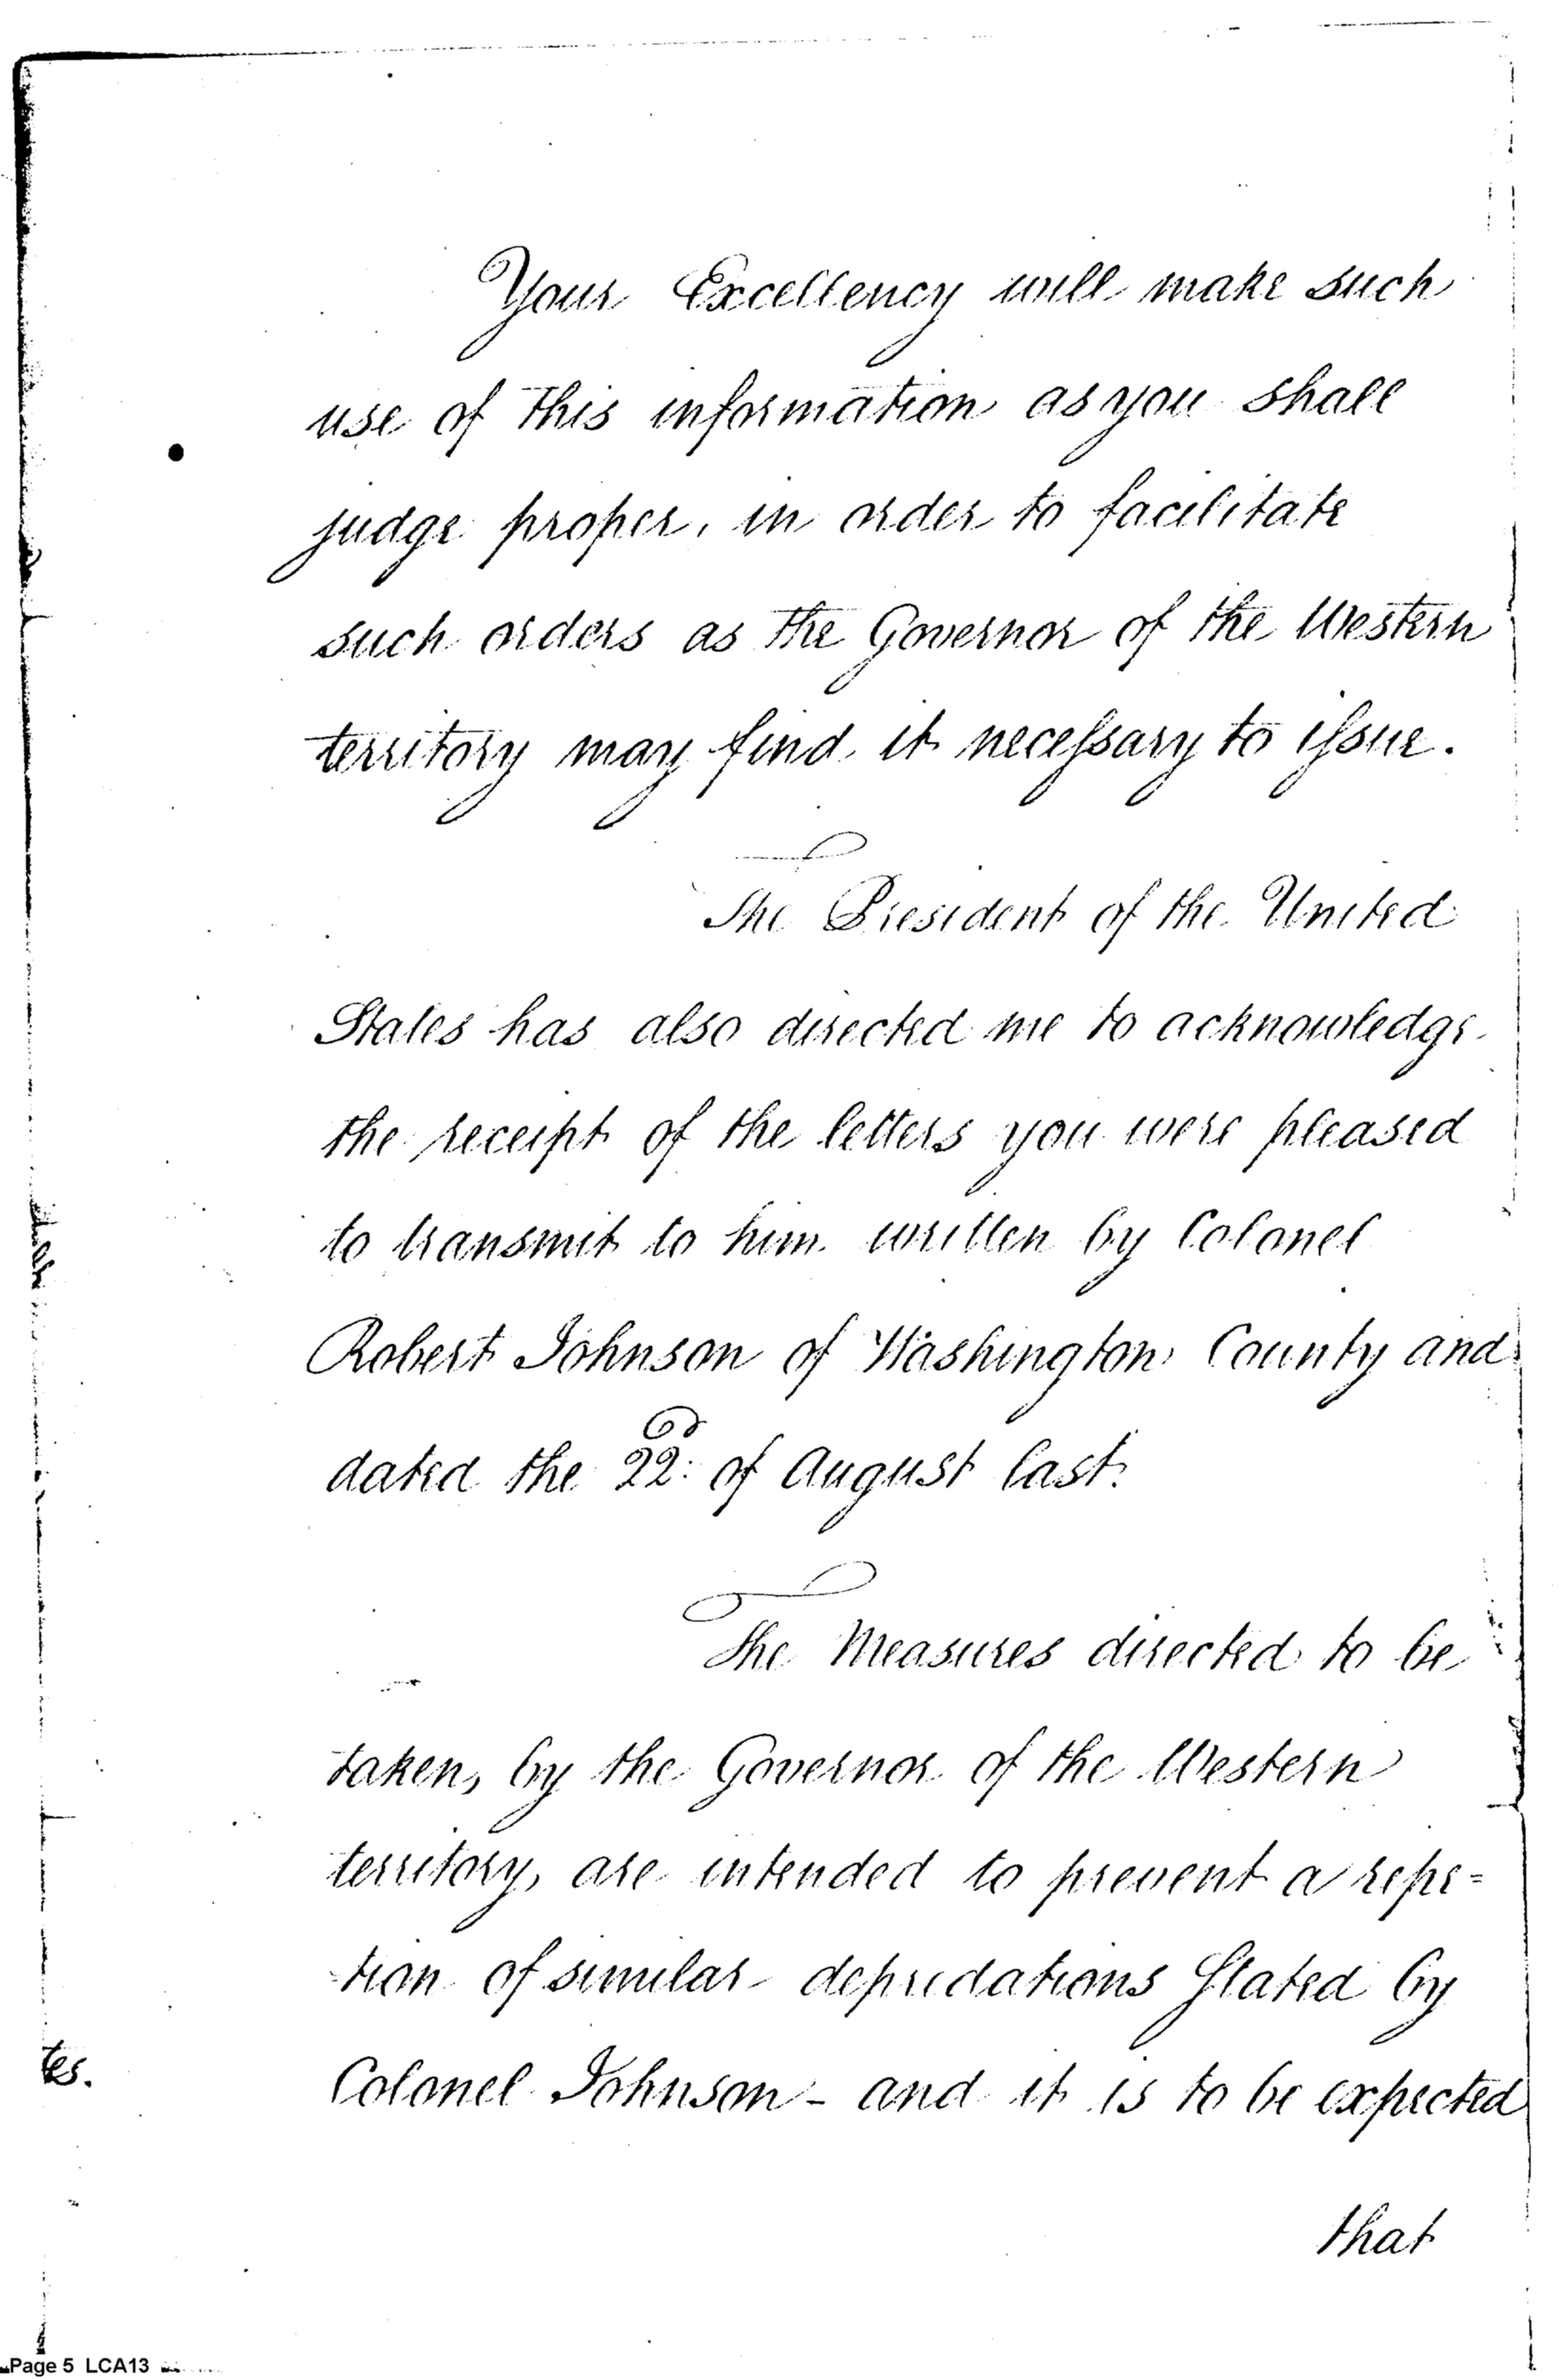 Your Excellency will make such
use of this information as you shall
judge proper, in order to facilitate
such orders as the Governor of the Western
territory may find it necessary to issue.
The President of the United
States has also directed me to acknowledge
the receipt of the letters you were pleased
to transmit to him written by Colonel
Robert Johnson of Washington County and
dated the 22d: of August last.
The Measures directed to be
taken, by the Governor of the Western
territory, are intended to prevent a repe=
=tion of similar depredations stated by
Colonel Johnson - and it is to be expected
that
tes.
Page 5 LCA13